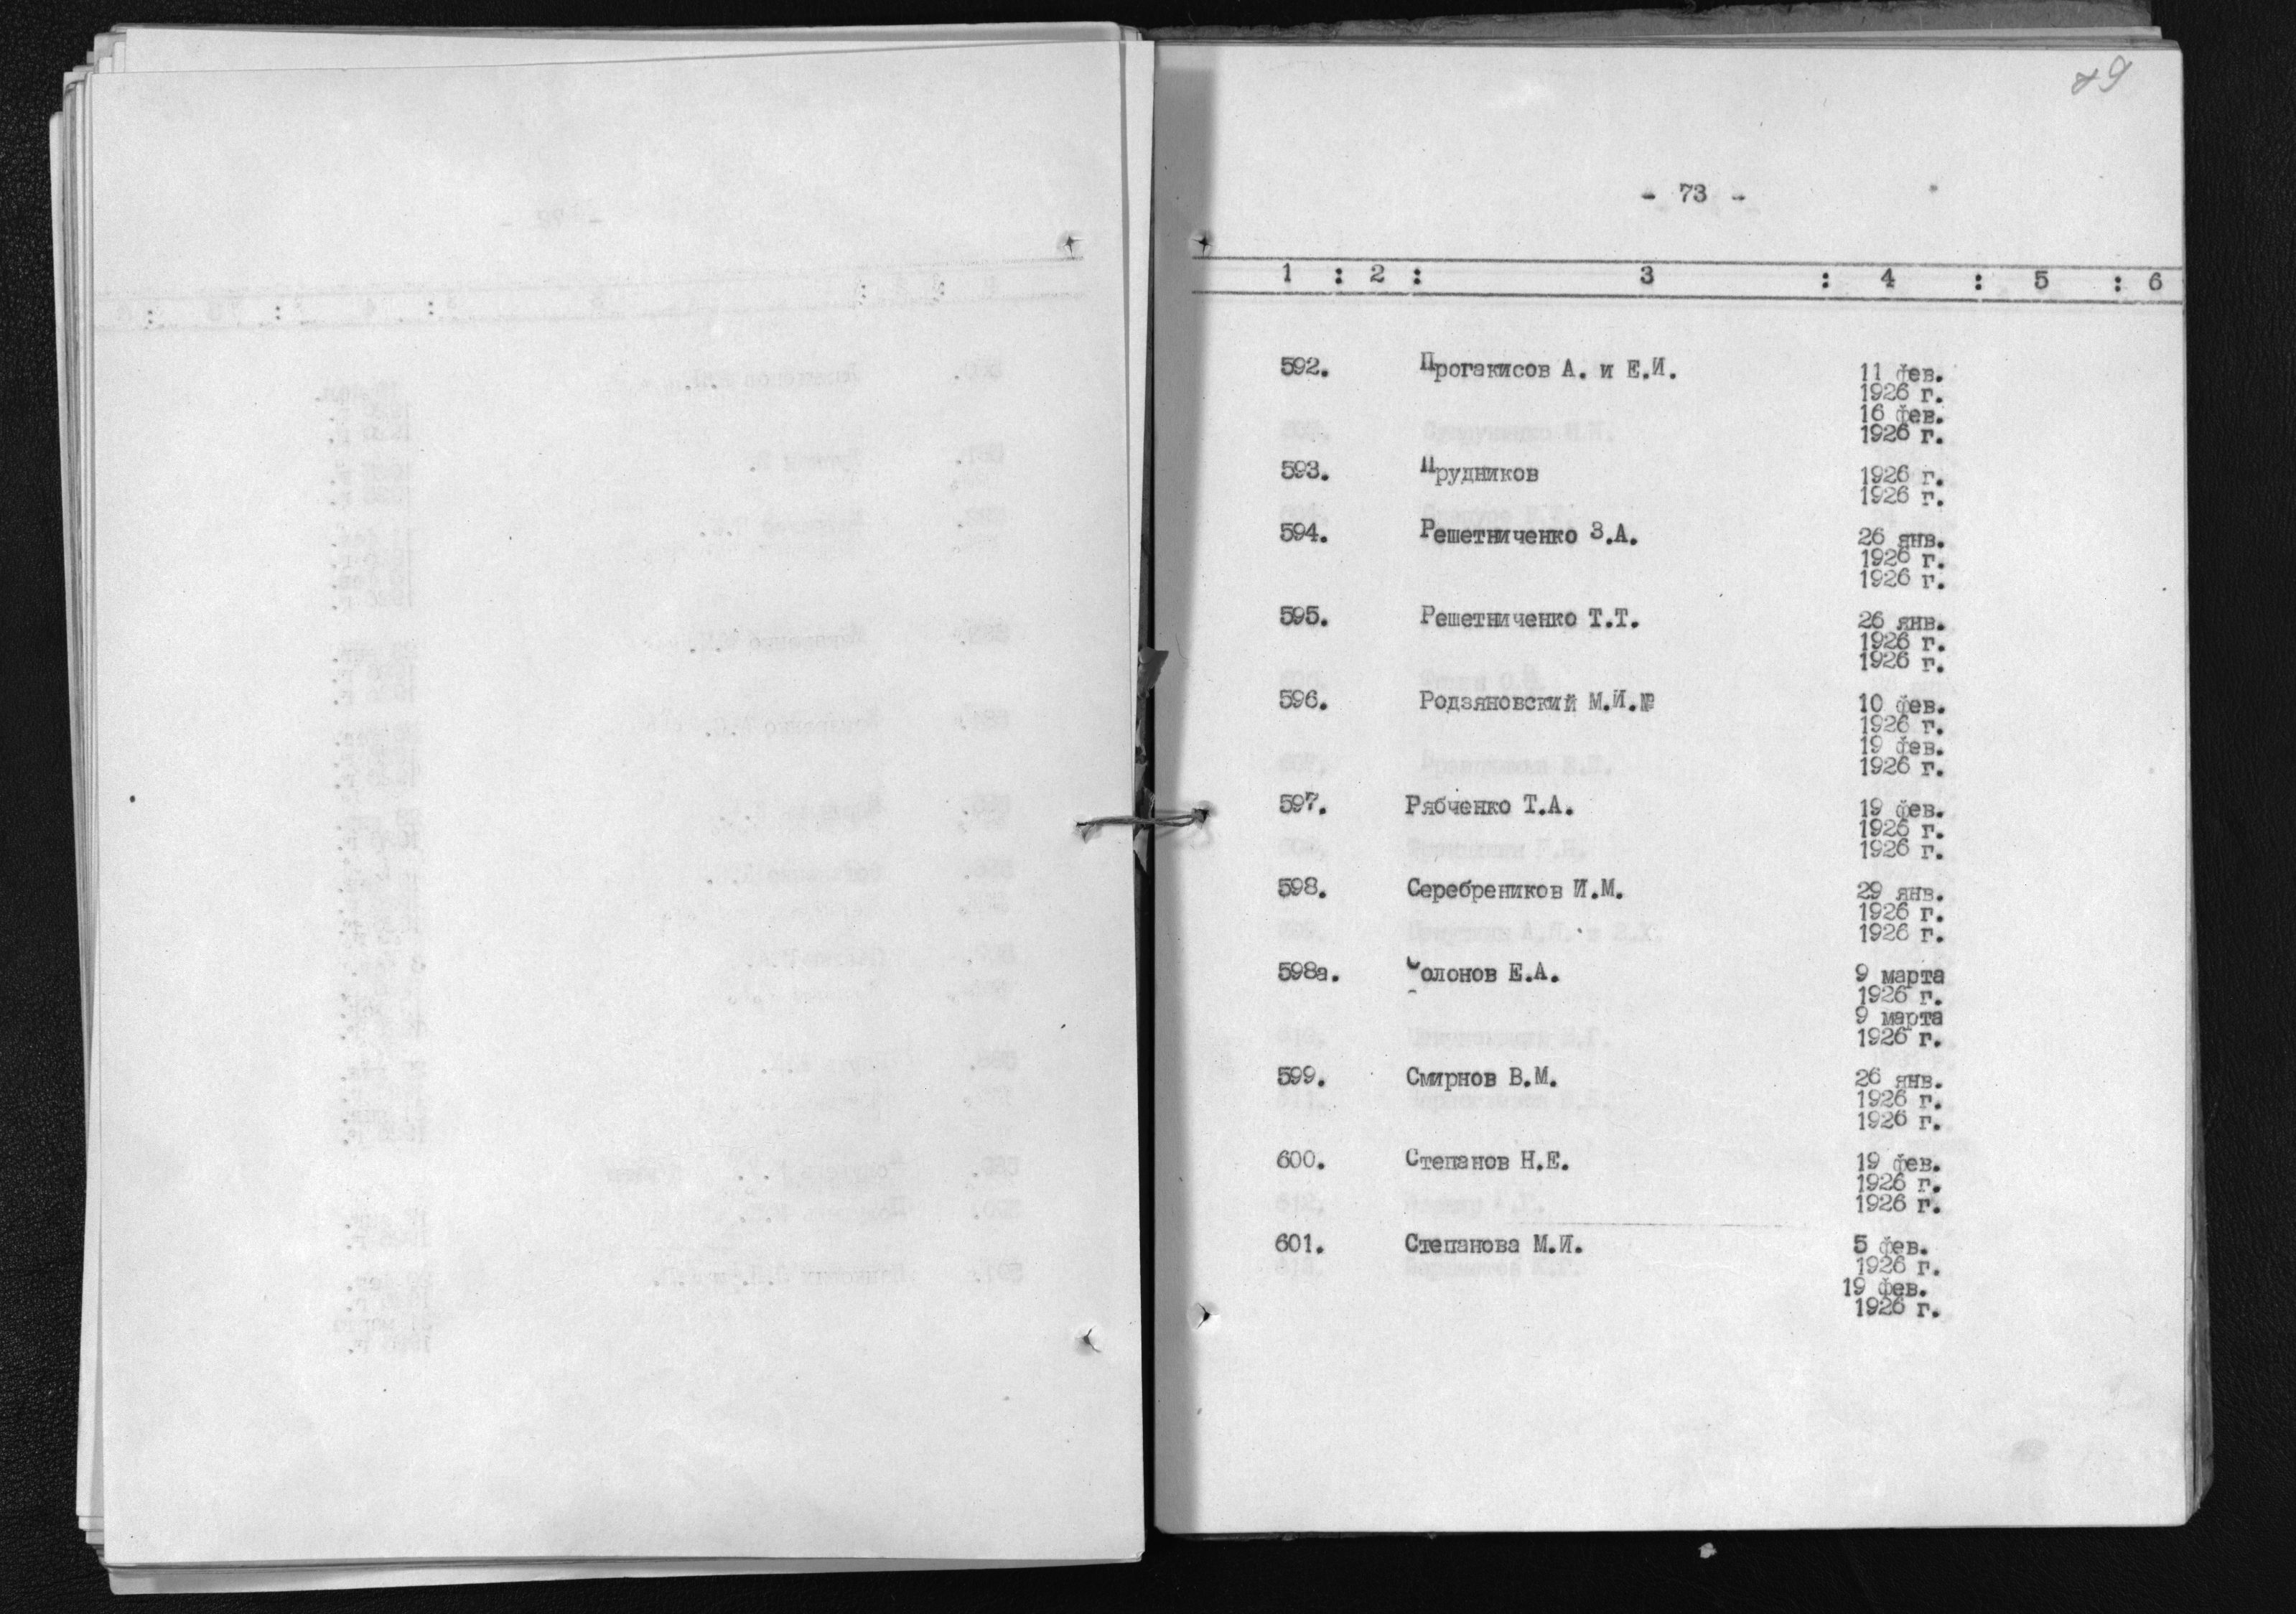 - 73 -
1 : 2 : 3 : 4 : 5 : 6
592. Прогакисов А. и Е.И. 11 фев.
1926 г.
16 фев.
1926 г.
593. Прудников 1926 г.
1926 г.
594. Решетниченко З.А. 26 янв.
1926 г.
1926 г.
595. Решетниченко Т.Т. 26 янв.
1926 г.
1926 г.
596. Родзяновский М.И.№ 10 фев.
1926 г.
19 фев.
1926 г.
597. Рябченко Т.А. 19 фев.
1926 г.
1926 г.
598. Серебреников И.М. 29 янв.
1926 г.
1926 г.
598а. Солонов Е.А. 9 марта
1926 г.
9 марта
1926 г.
599. Смирнов В.М. 26 янв.
1926 г.
1926 г.
600. Степанов Н.Е. 19 фев.
1926 г.
1926 г.
601. Степанова М.И. 5 фев.
1926 г.
19 фев.
1926 г.